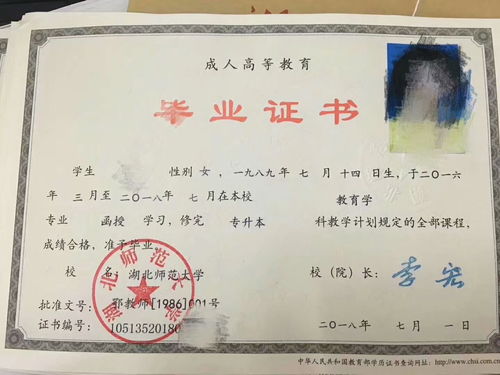 成人高等教育
毕业证书
学生 性别 女，一九八九年 七 月 十四 日生，于二〇一六
年 三月至 二〇一八年 七 月在本校 教育学
专业 函授 学习，修完 专升本 科教学计划规定的全部课程，
成绩合格，准予毕业。
校 名：湖北师范大学 校（院）长：李宏
批准文号：鄂教师[1986]001号
证书编号：10513520180 二〇一八年 七 月 一 日
湖北师范大学
中华人民共和国教育部学历证书查询网址：http://www.chsi.com.cn